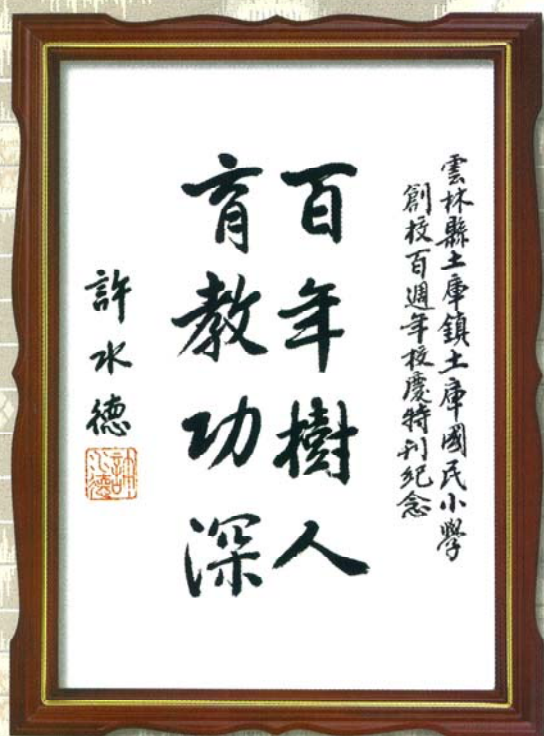 雲林縣土庫鎮土庫國民小學
創校百週年校慶特刊紀念
百年樹人
育教功深
許水德
許水德